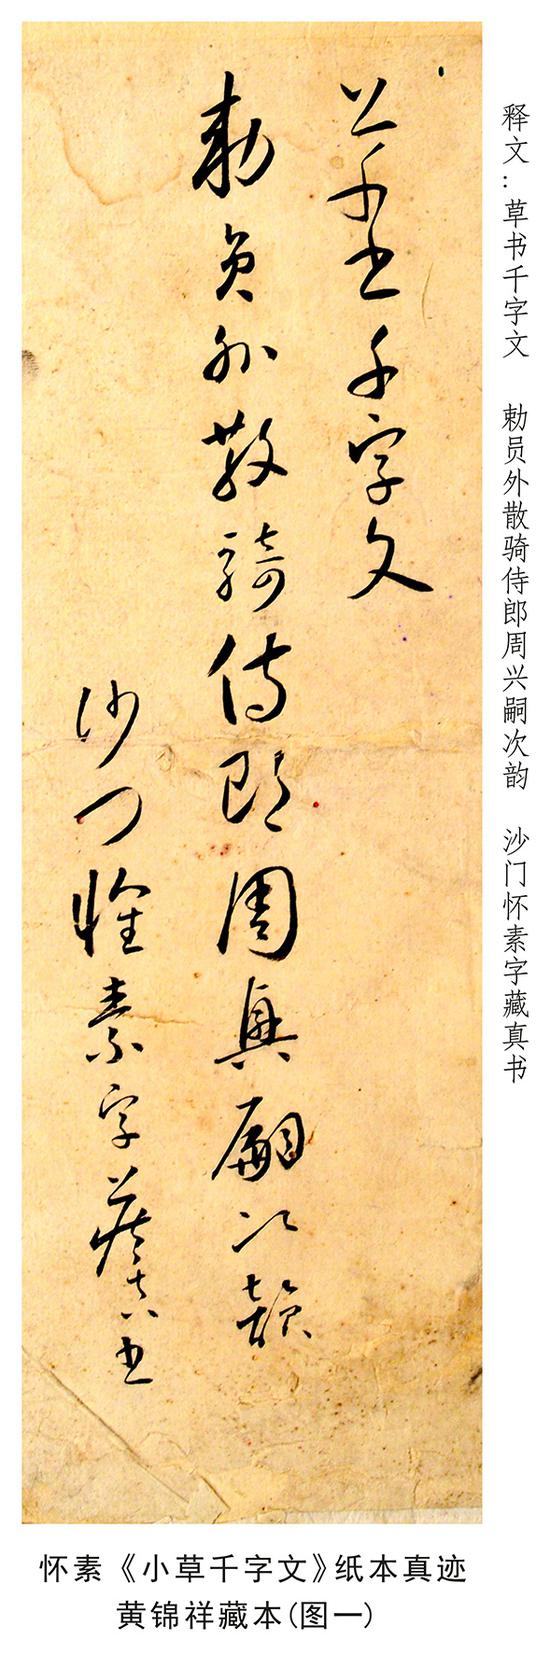 草书千字文
勅员外散骑侍郎周兴嗣次韵
沙门怀素字藏真书
释文：草书千字文 勅员外散骑侍郎周兴嗣次韵 沙门怀素字藏真书
怀素《小草千字文》纸本真迹
黄锦祥藏本(图一)